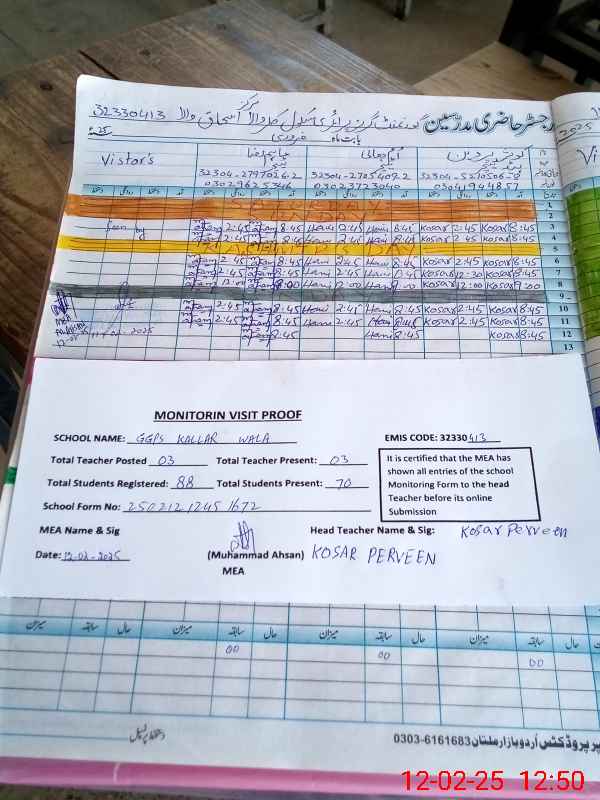 رجسٹر حاضری مدرسین گورنمنٹ گرلز پرائمری سکول کلر والا اسحاق والا 32330413
مرکز
بابت ماہ فروری 25ء
Vistor's
32304-2797026-2 32304-2785409-2 32304-5510506-8
03029625346 03023723040 03041944857
1
2
seen by 2:45 8:45 Hani 2:45 Hani 8:45 Kosar 2:45 Kosar 8:45 3
2:45 8:45 Hani 2:45 Hani 8:45 Kosar 2:45 Kosar 8:45 4
5
2:45 8:45 Hani 2:45 Hani 8:45 Kosar 2:45 Kosar 8:45 6
2:45 8:45 Hani 2:45 Hani 8:45 Kosar 12:30 Kosar 8:45 7
12:00 8:00 Hani 12:00 Hani 9:00 Kosar 12:00 Kosar 9:00 8
9
2:45 8:45 Hani 2:45 Hani 8:45 Kosar 2:45 Kosar 8:45 10
MEA 11-02-2025 2:45 8:45 Hani 2:45 Hani 8:45 Kosar 2:45 Kosar 8:45 11
12-02-2025 8:45 Hani 8:45 Kosar 8:45 12
13
MONITORIN VISIT PROOF
SCHOOL NAME: GGPS KALLAR WALA EMIS CODE: 32330413
Total Teacher Posted 03 Total Teacher Present: 03
Total Students Registered: 88 Total Students Present: 70
School Form No: 2502121245 1672
It is certified that the MEA has
shown all entries of the school
Monitoring Form to the head
Teacher before its online
Submission
MEA Name & Sig Head Teacher Name & Sig: Kosar Perveen
Date: 12-02-2025 (Muhammad Ahsan) KOSAR PERVEEN
MEA
حال سابقہ میزان حال سابقہ میزان حال سابقہ میزان
00 00 00
دستخط پرنسپل
پروڈکٹس اُردو بازار ملتان 0303-6161683
12-02-25 12:50